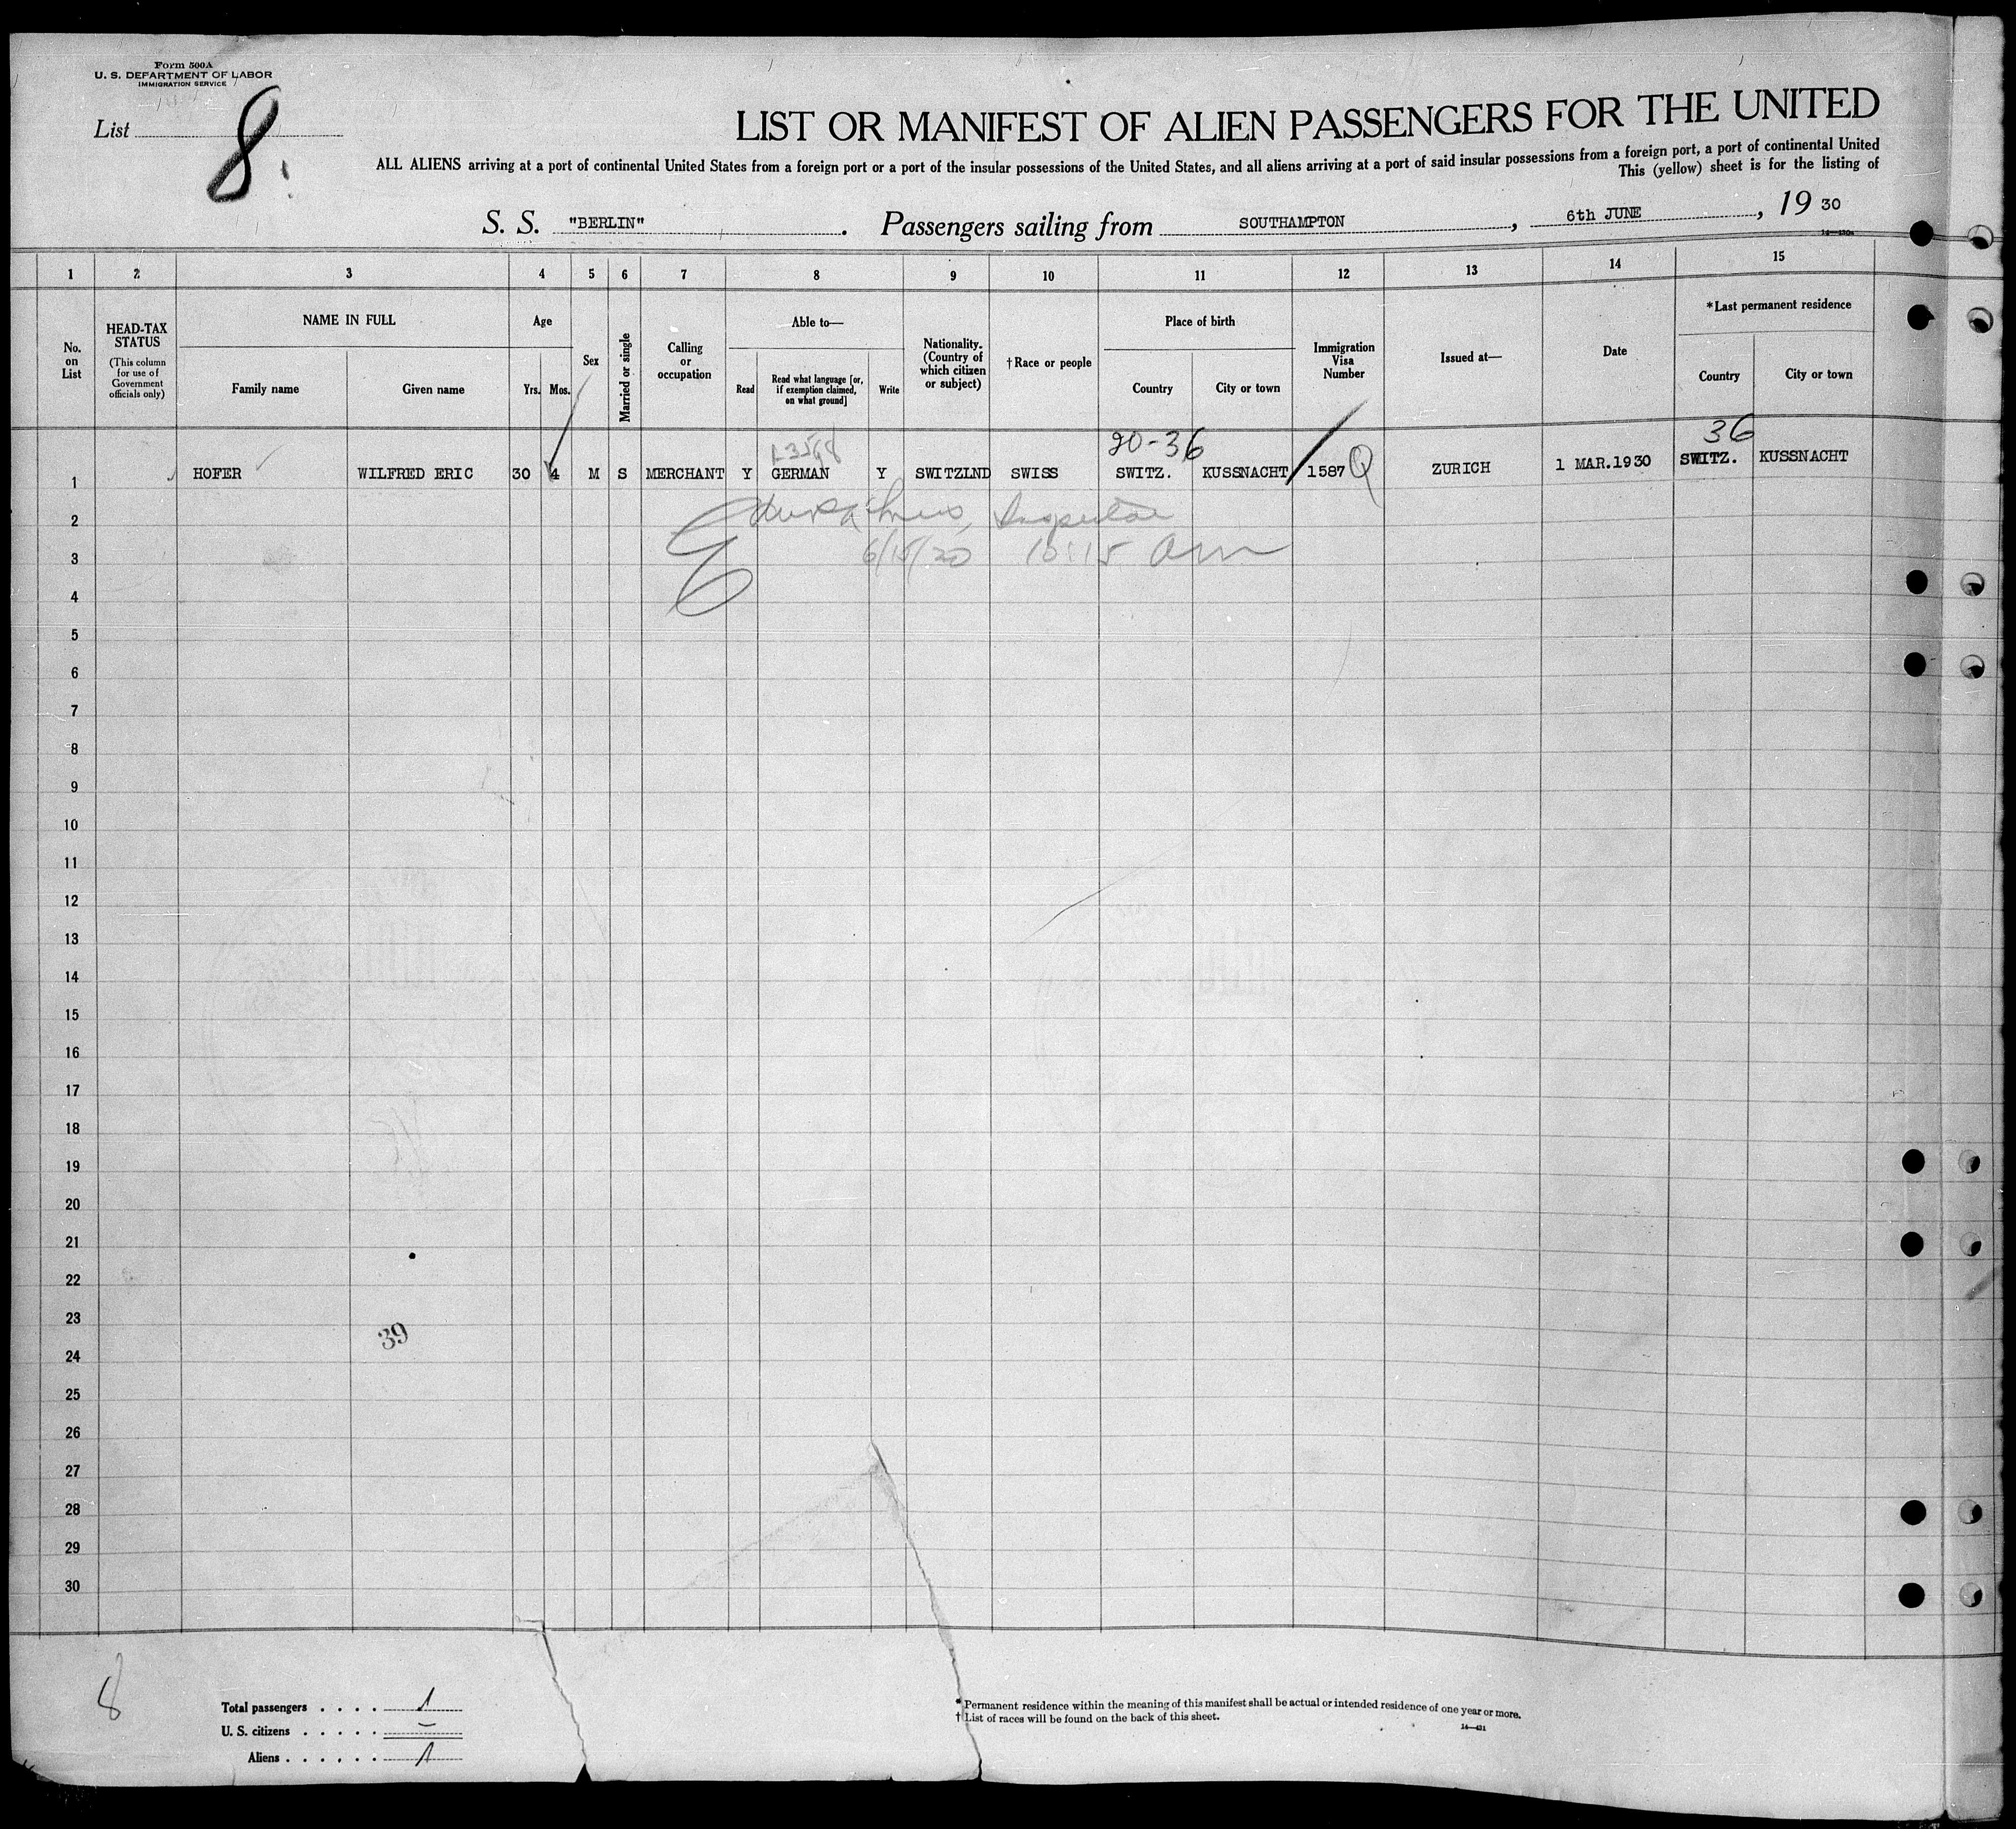 Form 500A
U. S. DEPARTMENT OF LABOR
IMMIGRATION SERVICE
List 8.
LIST OR MANIFEST OF ALIEN PASSENGERS FOR THE UNITED
ALL ALIENS arriving at a port of continental United States from a foreign port or a port of the insular possessions of the United States, and all aliens arriving at a port of said insular possessions from a foreign port, a port of continental United
This (yellow) sheet is for the listing of
S. S. "BERLIN". Passengers sailing from SOUTHAMPTON, 6th JUNE, 19 30
1 2 3 4 5 6 7 8 9 10 11 12 13 14 15
No. on List
HEAD-TAX STATUS
(This column for use of Government officials only)
NAME IN FULL
Family name Given name
Age
Yrs. Mos.
Sex
Married or single
Calling or occupation
Able to—
Read
Read what language [or, if exemption claimed, on what ground]
Write
Nationality. (Country of which citizen or subject)
†Race or people
Place of birth
Country City or town
Immigration Visa Number
Issued at—
Date
*Last permanent residence
Country City or town
20-36 36
1 HOFER WILFRED ERIC 30 4 M S MERCHANT Y GERMAN Y SWITZLND SWISS SWITZ. KUSSNACHT 1587 Q ZURICH 1 MAR.1930 SWITZ. KUSSNACHT
2 Inspector
3 6/15/30 10:15 am
4
5
6
7
8
9
10
11
12
13
14
15
16
17
18
19
20
21
22
23
39
24
25
26
27
28
29
30
8
Total passengers . . . . 1
U. S. citizens . . . . . –
Aliens . . . . . . 1
* Permanent residence within the meaning of this manifest shall be actual or intended residence of one year or more.
† List of races will be found on the back of this sheet.
14—431